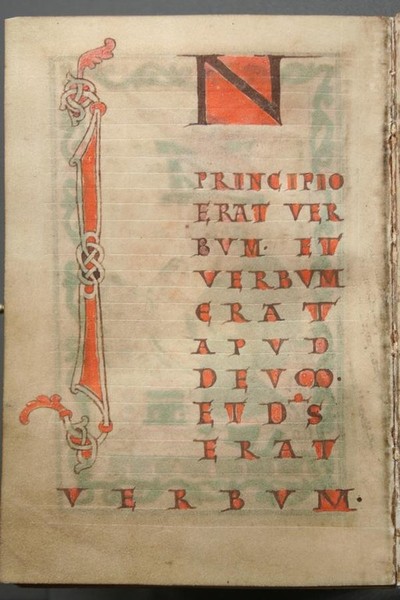 IN
PRINCIPIO
ERAT VER
BVM· ET
VERBVM
ERAT
APVD
DEVM.
ET DS̄
ERAT
VERBVM.